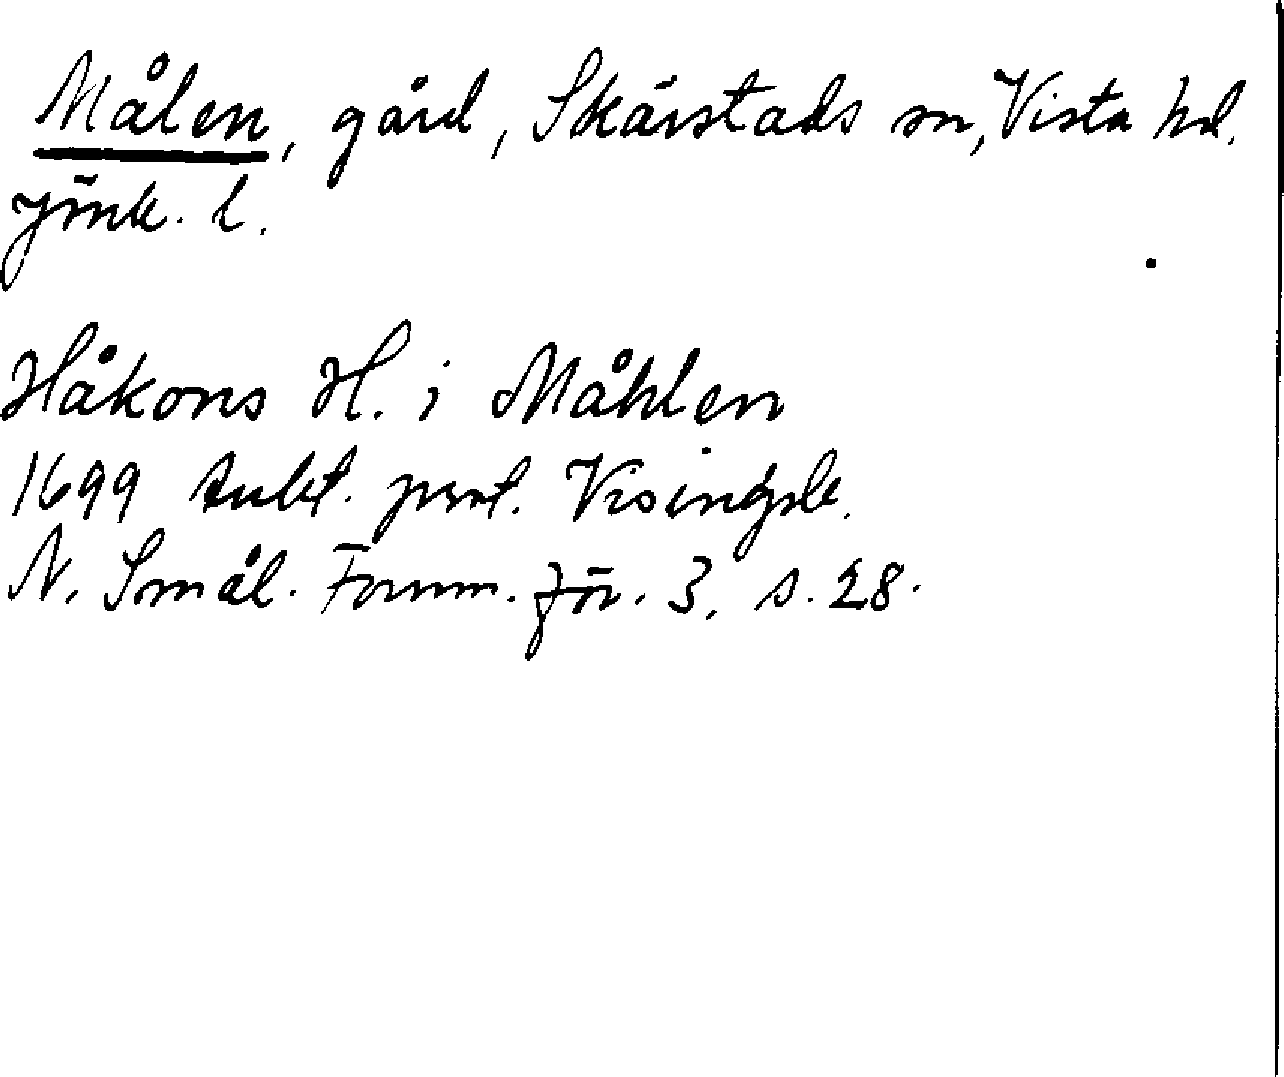 Målen, gård, Skärstads sn, Vista hd.
Jönk. l.
Håkons H. i Måhlen
1699 Aukt. prot. Visingsb.
N. Smål. Fornm. för. 3, s. 28.